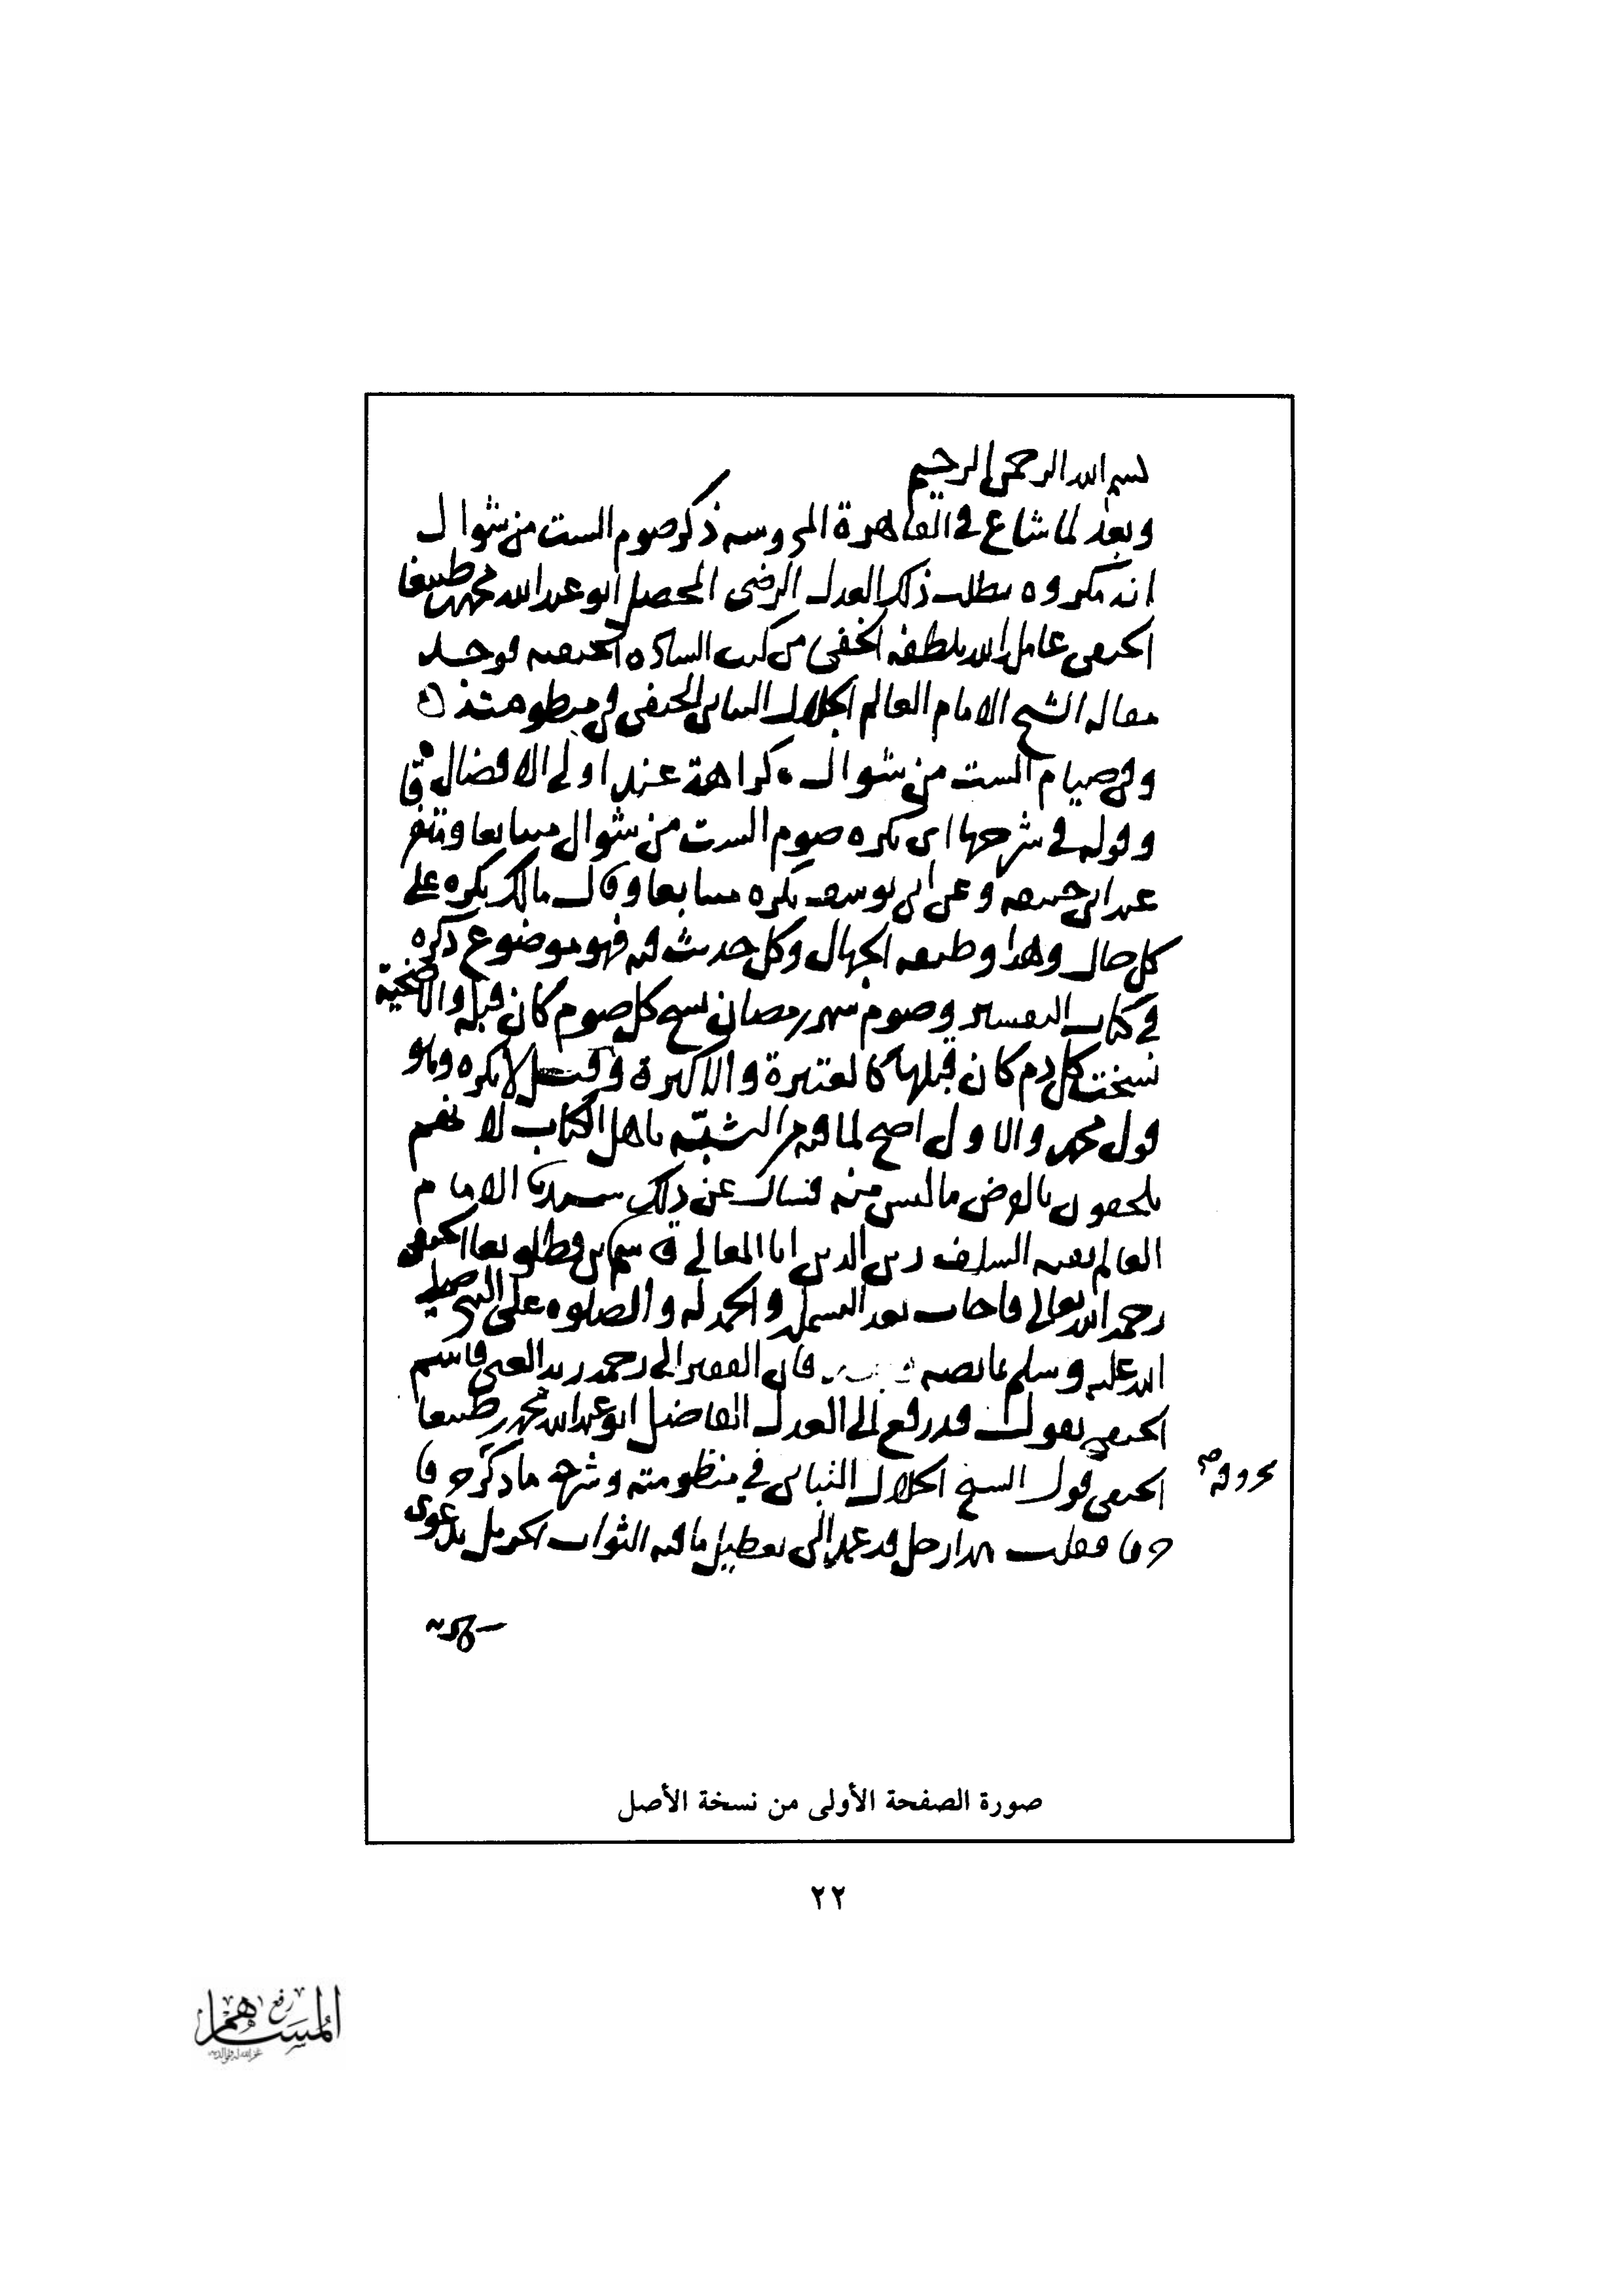 بسم الله الرحمن الرحيم
وبعد لما شاع في القاهرة المحروسه ذكر صوم الست من شوال
انه مكروه تطلب ذلك العدل الرضى المحصل ابو عبد الله محمد بن طيبغا
الحنفي عامله الله بلطفه الخفي من كتب الساده الحنفيه فوجد
مقاله الشيخ الامام العالم الجلال التباني الحنفي في منظومته
وفي صيام الست من شوال كراهة عند اولي الافضال
وقوله في شرحها اى يكره صوم الست من شوال متتابعا ومتفرقا
عند ابي حنيفه وعن ابي يوسف يكره متتابعا وقال مالك يكره على
كل حال وهذا وظيفه الجهال وكل حديث فيه فهو موضوع ذكره
في كتاب التفسير وصوم شهر رمضان نسخ كل صوم كان قبله والاضحية
نسخت كل دم كان قبلها كالعتيرة و وقيل لا يكره وهو
قول محمد والاول اصح لما فيه من التشبه باهل الكتاب لانهم
يلحقون بالفرض ما ليس منه فسال عن ذلك سيدنا الامام
العالم بقيه السلف زين الدين ابا المعالي قاسم بن قطلوبغا الحنفي
رحمه الله تعالى فاجاب بعد البسمله والحمدله والصلوه على النبي صلى
الله عليه وسلم بما نصه فان الفقير الى رحمة ربه الغني قاسم
الحنفي يقول قد رفع الى العدل الفاضل ابو عبد الله محمد بن طيبغا
الحنفي قول الشيخ الجلال التباني في منظومته وشرحه ما ذكر
بحروفه صح
فقلت هذا رجل قد عمد الى تعطيل ما فيه الثواب الجزيل بدعوى
صورة الصفحة الأولى من نسخة الأصل
٢٢
رفع
المساهم
غفر الله له ولوالديه